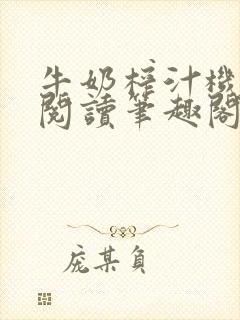 牛奶榨汁機
閱讀筆趣閣
庞某負